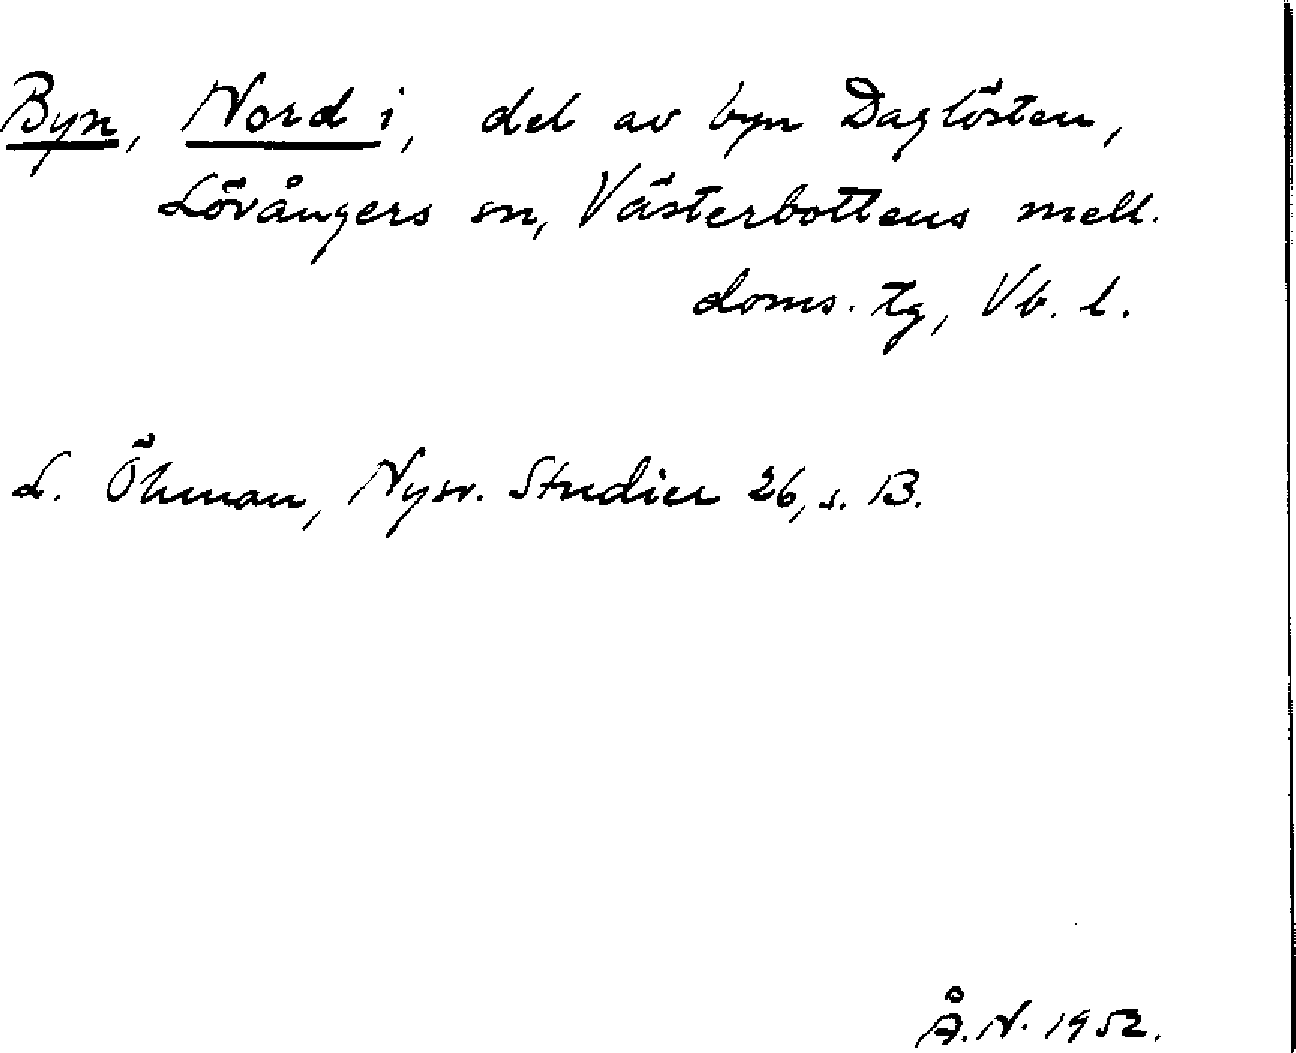 Byn, Nord i, del av byn Daglösten,
Lövångers sn, Västerbottens mell.
doms. tg, Vb. l.
L. Öhman, Nysv. Studier 26, s. 13.
Å. N. 1952.